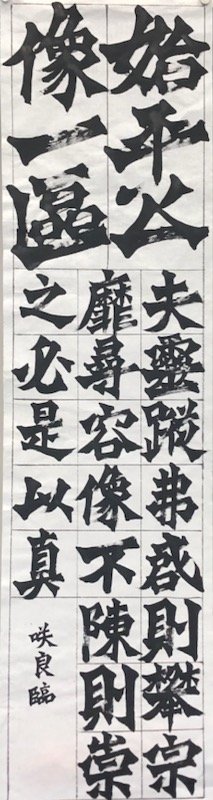 始平公
像一區
夫靈蹤弗啓則攀宗
靡尋容像不陳則崇
之必是以真
咲良臨